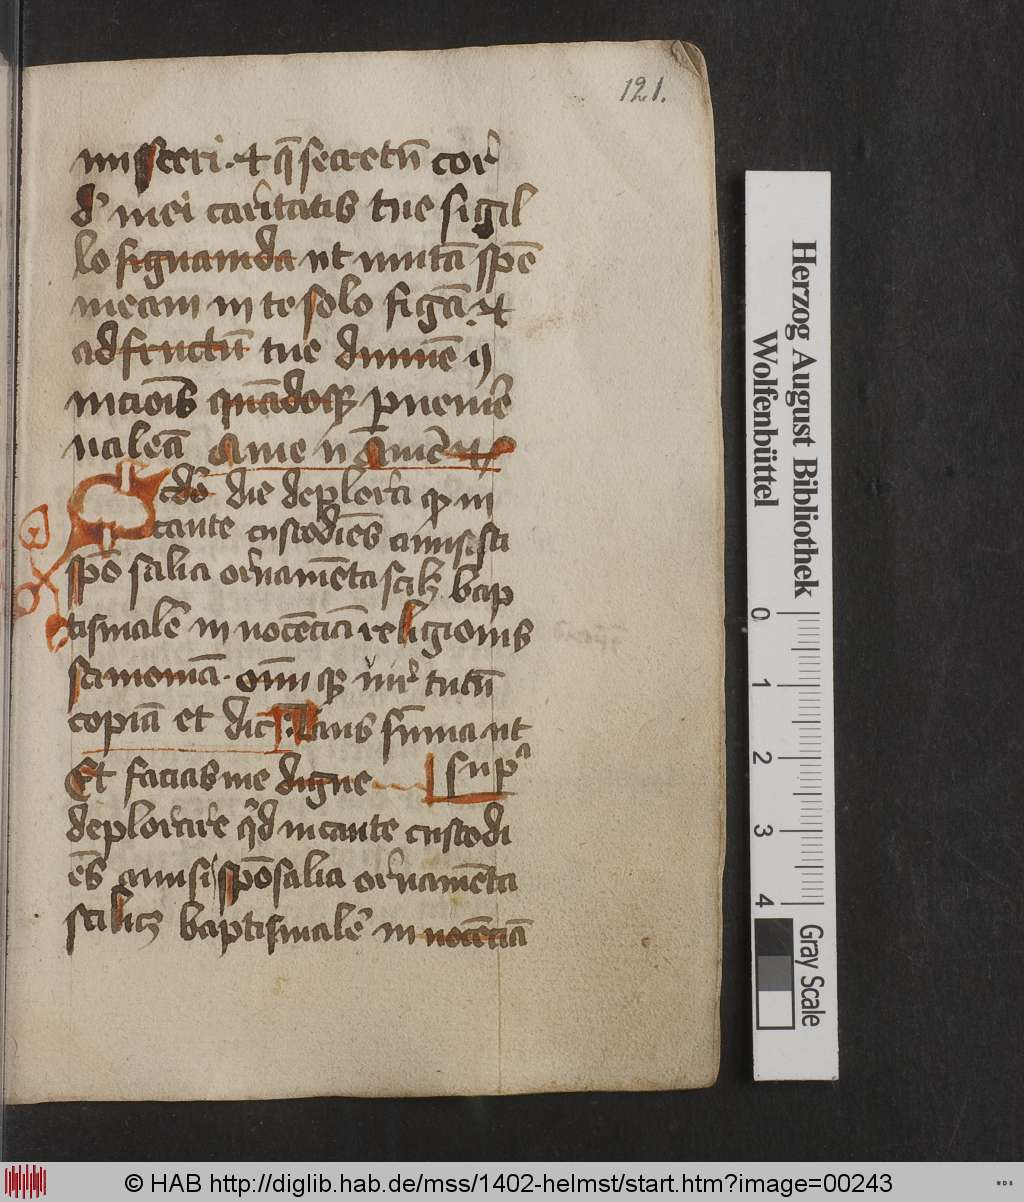 121.
misseri · et q̄ secretū cor
d' mei caritatis tue sigil
lo signanda ut mutā spē
meam in te solo figā · et
ad fructū tue dīnine 
niciōis quādoq ꝑuenire
ualeā Ame n Amē
die deplora in
caute custodiēs amisisti
spōsalia ornamēta scilꝫ bap
tismalē in nocēciā religionis
scimoniā · oīm tutū
copiā et dic Laus sūma ut
Et facias me digne supᵃ
deplorare qd incaute custodi
ēs amisi spōsalia ornamēta
scilicꝫ baptismalē in nocēciā
Herzog August Bibliothek
Wolfenbüttel
0 1 2 3 4
Gray Scale
© HAB http://diglib.hab.de/mss/1402-helmst/start.htm?image=00243